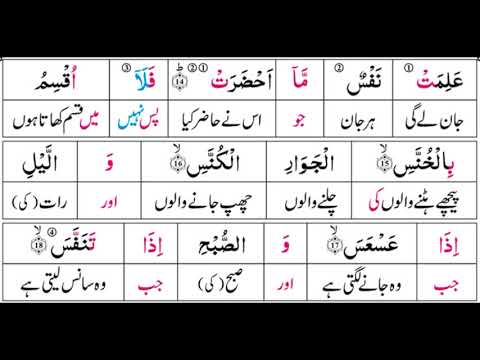 عَلِمَتْ ① نَفْسٌ ② مَّآ اَحْضَرَتْ ①② ⑭ فَلَآ ③ اُقْسِمُ
جان لے گی ہر جان جو اس نے حاضر کیا پس نہیں میں قسم کھاتا ہوں
بِالْخُنَّسِ ⑮ الْجَوَارِ الْكُنَّسِ ⑯ وَ الَّيْلِ
پیچھے ہٹنے والوں کی چلنے والوں چھپ جانے والوں اور رات (کی)
اِذَا عَسْعَسَ ⑰ وَ الصُّبْحِ اِذَا تَنَفَّسَ ④ ⑱
جب وہ جانے لگتی ہے اور صبح (کی) جب وہ سانس لیتی ہے